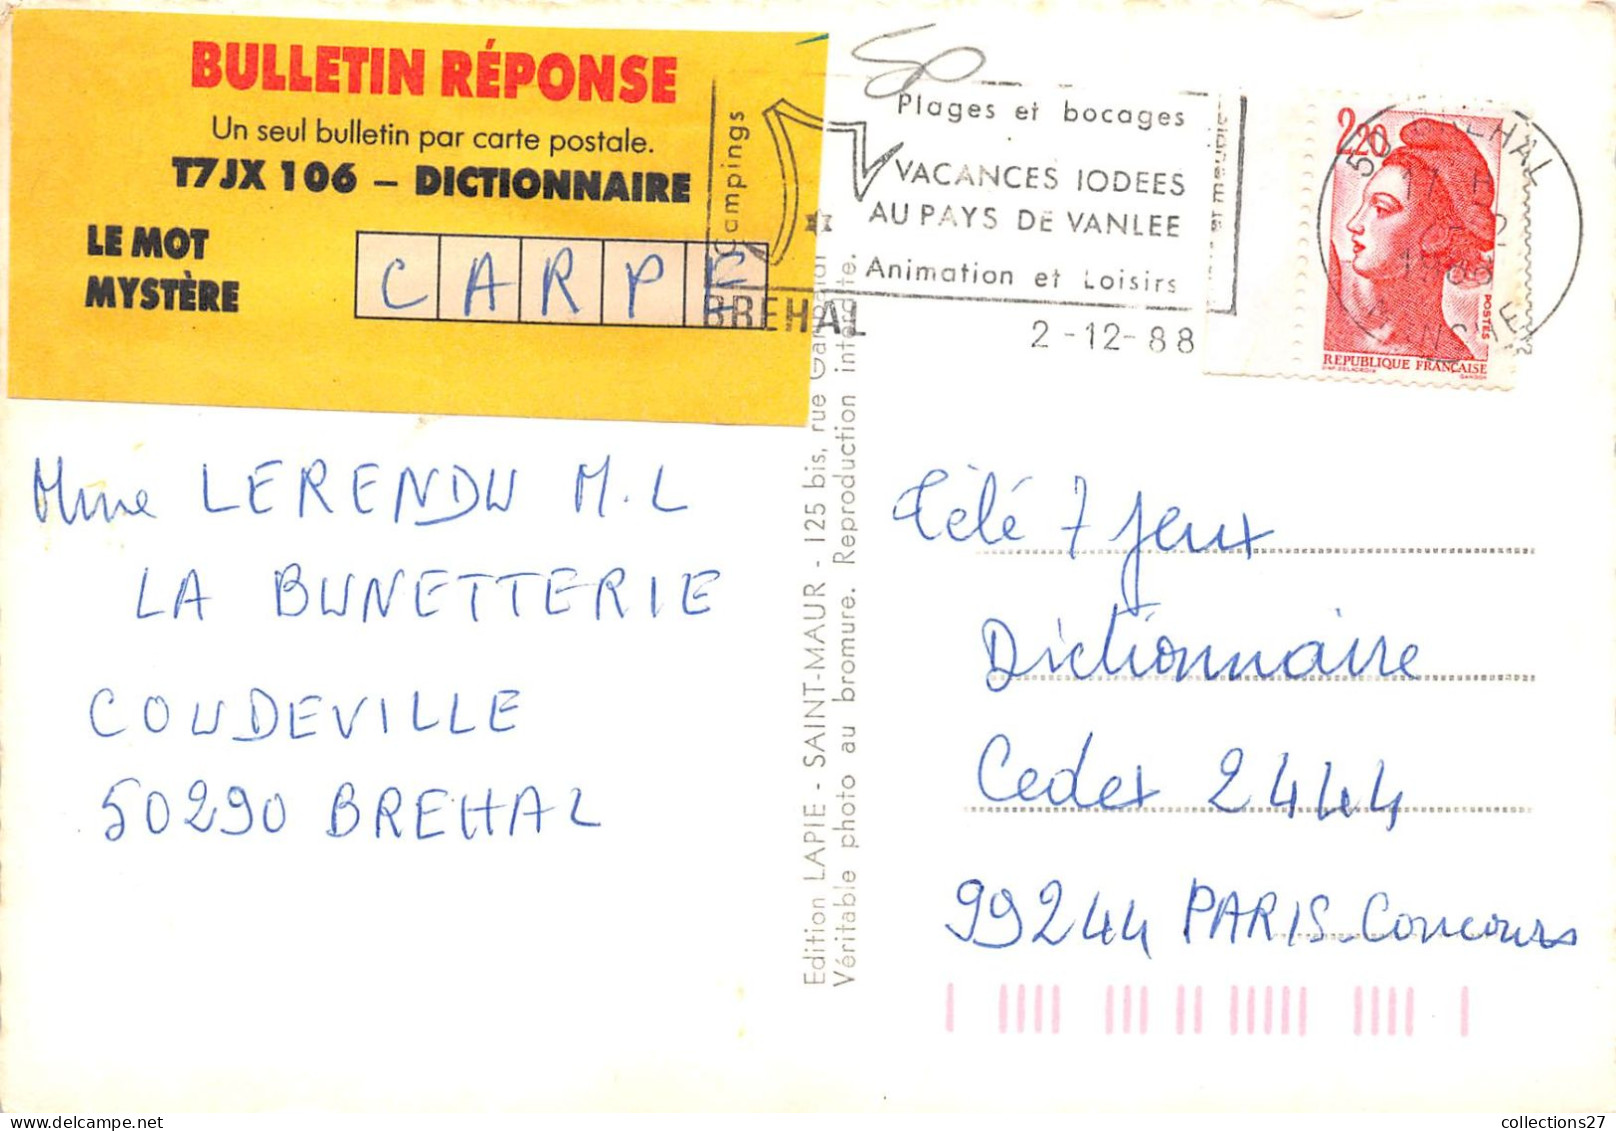 BULLETIN RÉPONSE
Un seul bulletin par carte postale.
T7JX 106 – DICTIONNAIRE
LE MOT
MYSTÈRE
CARPE
Campings
BREHAL
Plages et bocages
VACANCES IODEES
AU PAYS DE VANLEE
Animation et Loisirs
2-12-88
50 BREHAL
17 H
2-12
1988
MANCHE
2,20
POSTES
REPUBLIQUE FRANÇAISE
D'AP. DELACROIX
GANDON
Mme LERENDU M.L
LA BUNETTERIE
COUDEVILLE
50290 BREHAL
Edition LAPIE - SAINT-MAUR - 125 bis, rue Garibaldi
Véritable photo au bromure. Reproduction interdite.
Télé 7 Jeux
Dictionnaire
Cedex 2444
99244 PARIS-Concours
collections27